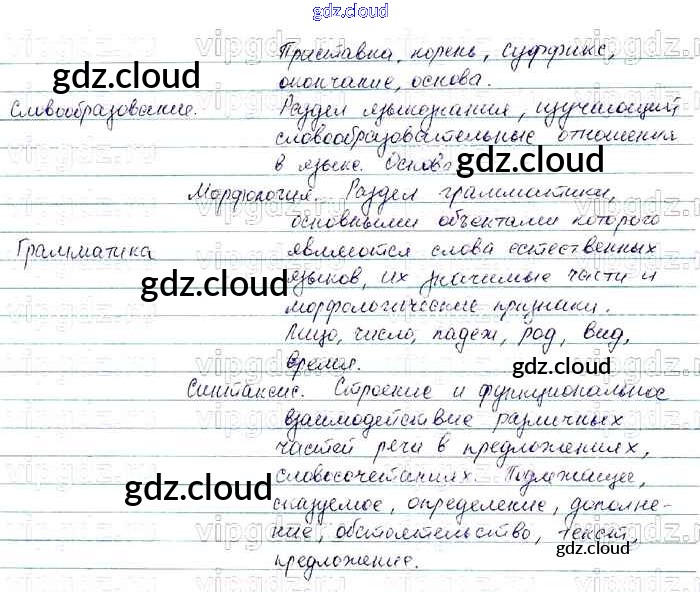 gdz.cloud
Приставка, корень, суффикс,
окончание, основа.
Словообразование. Раздел языкознания, изучающий
словообразовательные отношения
в языке. Основа
Морфология. Раздел грамматики,
основными объектами которого
Грамматика являются слова естественных
языков, их значимые части и
морфологические признаки.
Лицо, число, падеж, род, вид,
время.
Синтаксис. Строение и функциональное
взаимодействие различных
частей речи в предложениях,
словосочетаниях. Подлежащее,
сказуемое, определение, дополне-
ние, обстоятельство, текст,
предложение.